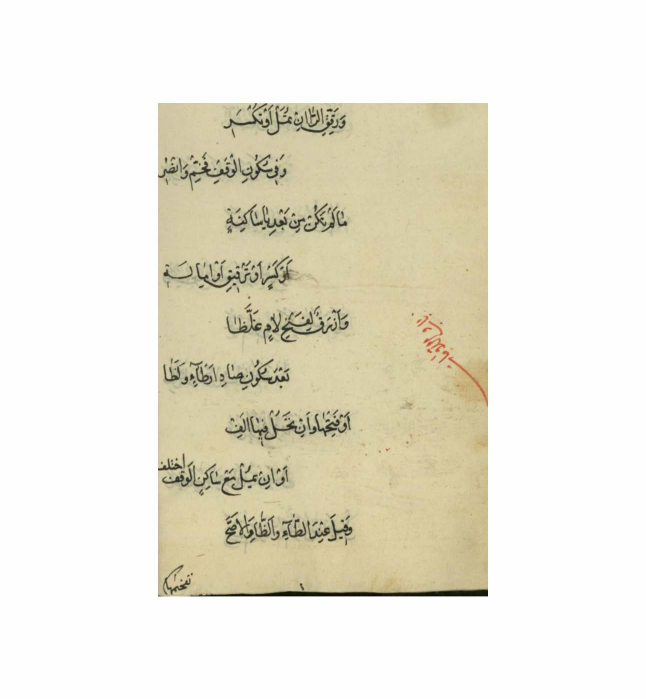 وَرَقِّقِ الرَّا إِنْ تُمَلْ أَوْ تُكْسَرِ
وَفِي سُكُونِ الْوَقْفِ فَخِّمْ وَانْصُرِ
مَا لَمْ تَكُنْ مِنْ بَعْدِ يَا سَاكِنَةٍ
أَوْ كَسْرٍ أَوْ تَرْقِيقٍ أَوْ إِمَالَةِ
وَأَزْرَقٌ لِفَتْحِ لَامٍ غَلَّظَا
بَعْدَ سُكُونِ صَادٍ أَوْ طَاءٍ وَظَا
أَوْ فَتْحِهَا وَإِنْ يَحُلْ فِيهَا أَلِفْ
أَوْ إِنْ يُمَلْ مَعْ سَاكِنِ الْوَقْفِ اخْتُلِفْ
وَقِيلَ عِنْدَ الطَّاءِ وَالظَّا وَالْأَصَحّ
تفخيمها